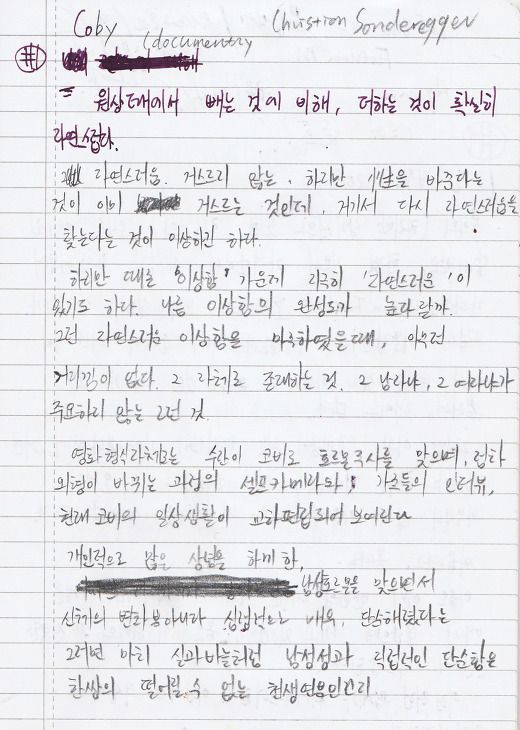 Coby (documentry Christion Sonderegger
#
= 원상태에서 빼는 것에 비해, 더하는 것이 확실히
자연스럽다.
자연스러움. 거스르지 않는. 하지만 性을 바꾼다는
것이 이미 거스르는 것인데, 거기서 다시 자연스러움을
찾는다는 것이 이상하긴 하다.
하지만 때론 '이상함' 가운데 지극히 '자연스러운'이
있기도 하다. 나름 이상함의 완성도가 높다랄까.
그런 자연스러운 이상함을 마주하였을 때, 아무런
거리낌이 없다. 그 자체로 존재하는 것. 그 남자냐, 그 여자냐가
주요하지 않는 그런 것.
영화형식자체로는 수잔이 코비로 호르몬주사를 맞으며, 점차
외형이 바뀌는 과정의 셀프카메라와, 가족들의 인터뷰,
현재 코비의 일상생활이 교차편집되어 보여진다
개인적으로 많은 상념을 하게 한,
남성호르몬을 맞으면서
신체의 변화뿐아니라 심리적으로 매우, 단순해졌다는
그러면 마치 실과 바늘처럼 남성성과 직접적인 단순함은
한쌍의 떨어질 수 없는 천생연분인건지